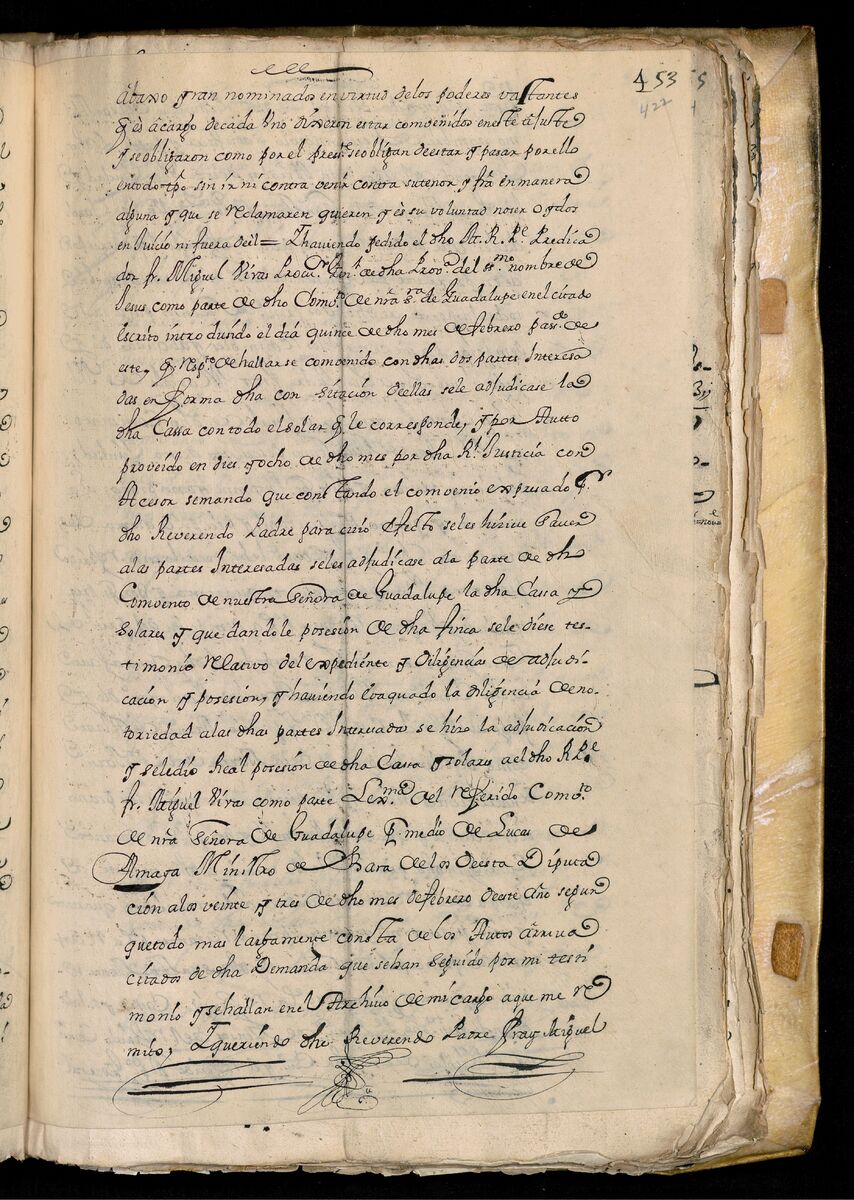 453
422
abaxo yran nominados en virtud de los poderes vastantes
q̃ es a cargo de cada Uno dixeron estar comvenidos en este ajuste
y se obligaron como por el prest.e se obligan de estar y pasar por ello
en todo tpõ sin ir ni contra venir contra su tenor y frã en manera
alguna y que se reclamaren quieren y es su voluntad no ser oydos
en Juicio ni fuera de el = Y haviendo pedido el dho M. R. P.e Predica
dor fr. Miguel Viras Procu.r Gen.l de dha Prov.a del SS.mo nombre de
Jesus como parte de dho Comv.to de nrã S.ra de Guadalupe en el citado
Escrito introdusido el dia quince de dho mes de febrero pas.do de
este, q̃ resp.to de hallarse comvenido con dhas dos partes Interesa
das en forma dha con sitación de ellas se le adjudicase la
dha Cassa con todo el solar q̃ le corresponde, y por Autto
proveido en dies y ocho de dho mes por dha R.l Justicia con
Acesor se mando que constando el comvenio expresado p.r
dho Reverendo Padre para cuio efecto se les hiciese saver
a las partes Interesadas se les adjudicase a la parte de dho
Comvento de nuestra Señora de Guadalupe la dha Cassa y
Solares y que dandole posesión de dha finca se le diese tes-
timonio relativo del expediente y diligencias de adjudi-
cación y posesión, y haviendo Evaquado la diligencia de no-
toriedad a las dhas partes Interesadas se hizo la adjudicación
y se le dio Real posesión de dha Cassa y solares a el dho R. P.e
fr. Miguel Viras como parte Lex.ma del referido Comv.to
de nrã Señora de Guadalupe p.r medio de Lucas de
Amaga Ministro de Bara de los de esta Diputa
ción a los veinte y tres de dho mes de febrero de este año segun
que todo mas largamente consta de los Autos arriva
citados de dha Demanda que se han seguido por mi testi
monio y se hallan en el Archivo de mi cargo a que me re
mito, Y queriendo dho Reverendo Padre Fray Miguel